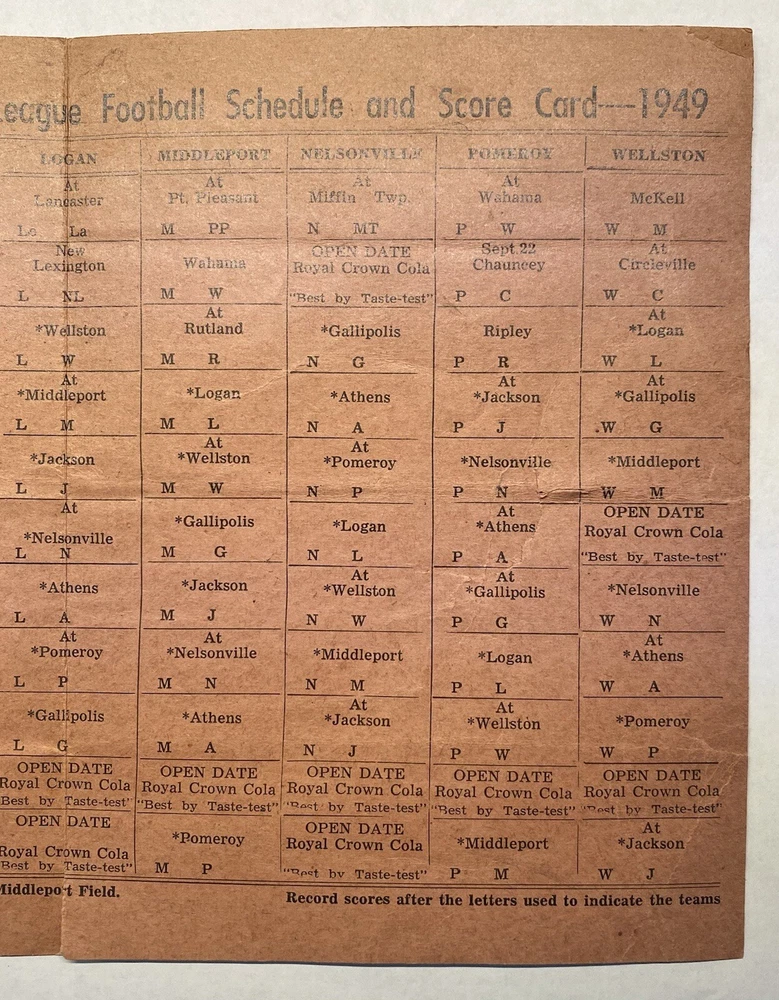 League Football Schedule and Score Card----1949
LOGAN MIDDLEPORT NELSONVILLE POMEROY WELLSTON
At At At At
Lancaster Pt. Pleasant Miffin Twp. Wahama McKell
Lo La M PP N MT P W W M
New OPEN DATE Sept. 22 At
Lexington Wahama Royal Crown Cola Chauncey Circleville
L NL M W "Best by Taste-test" P C W C
At At
*Wellston Rutland *Gallipolis Ripley *Logan
L W M R N G P R W L
At At At
*Middleport *Logan *Athens *Jackson *Gallipolis
L M M L N A P J W G
At At
*Jackson *Wellston *Pomeroy *Nelsonville *Middleport
L J M W N P P N W M
At At OPEN DATE
*Nelsonville *Gallipolis *Logan *Athens Royal Crown Cola
L N M G N L P A "Best by Taste-test"
At At
*Athens *Jackson *Wellston *Gallipolis *Nelsonville
L A M J N W P G W N
At At At
*Pomeroy *Nelsonville *Middleport *Logan *Athens
L P M N N M P L W A
At At
*Gallipolis *Athens *Jackson *Wellston *Pomeroy
L G M A N J P W W P
OPEN DATE OPEN DATE OPEN DATE OPEN DATE OPEN DATE
Royal Crown Cola Royal Crown Cola Royal Crown Cola Royal Crown Cola Royal Crown Cola
Best by Taste-test" "Best by Taste-test" "Best by Taste-test" "Best by Taste-test" "Best by Taste-test"
OPEN DATE OPEN DATE At
Royal Crown Cola *Pomeroy Royal Crown Cola *Middleport *Jackson
Best by Taste-test" M P "Best by Taste-test" P M W J
Middleport Field. Record scores after the letters used to indicate the teams